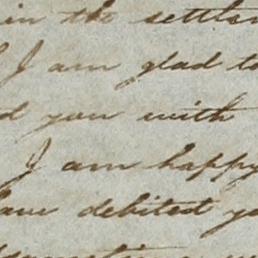 in the settle
I am glad to
d you with
I am happy
have debited yo